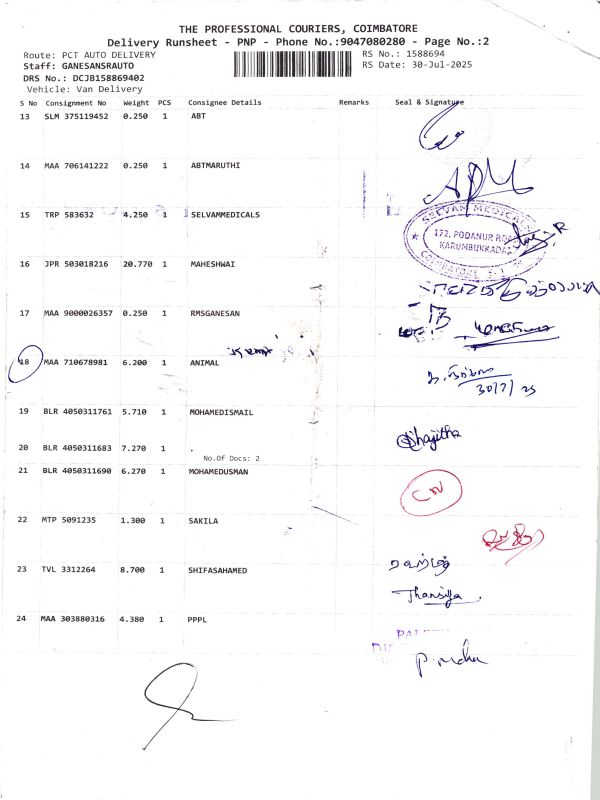 THE PROFESSIONAL COURIERS, COIMBATORE
Delivery Runsheet - PNP - Phone No.:9047080280 - Page No.:2
Route: PCT AUTO DELIVERY
RS No.: 1588694
Staff: GANESANSRAUTO
RS Date: 30-Jul-2025
DRS No.: DCJB158869402
Vehicle: Van Delivery
S No Consignment No Weight PCS Consignee Details Remarks Seal & Signature
13 SLM 375119452 0.250 1 ABT
14 MAA 706141222 0.250 1 ABTMARUTHI
15 TRP 583632 4.250 1 SELVAMMEDICALS
SELVAM MEDICALS
172, PODANUR ROAD
KARUMBUKKADAI
COIMBATORE
16 JPR 503018216 20.770 1 MAHESHWAI
17 MAA 9000026357 0.250 1 RMSGANESAN
18 MAA 710678981 6.200 1 ANIMAL
30/7/25
19 BLR 4050311761 5.710 1 MOHAMEDISMAIL
Shajitha
20 BLR 4050311683 7.270 1 .
No.Of Docs: 2
21 BLR 4050311690 6.270 1 MOHAMEDUSMAN
22 MTP 5091235 1.300 1 SAKILA
23 TVL 3312264 8.700 1 SHIFASAHAMED
Thansiya.
24 MAA 303880316 4.380 1 PPPL